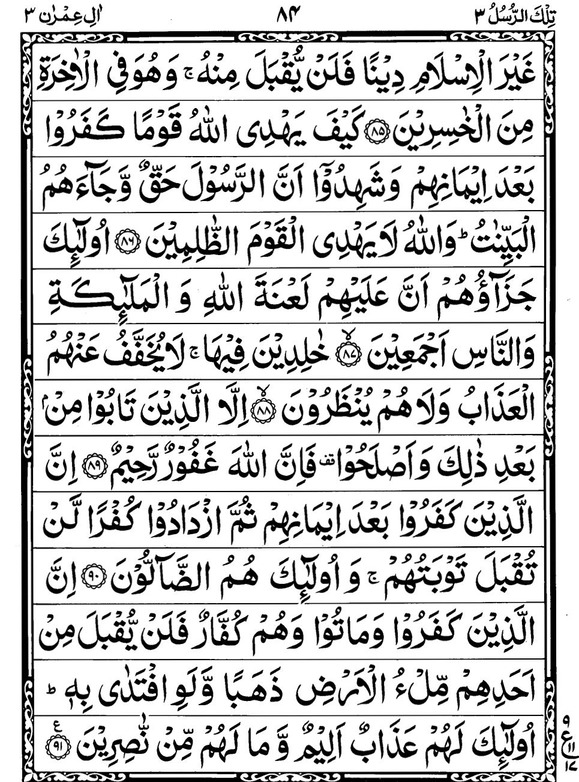 تِلْكَ الرُّسُلُ ٣ ٨٤ اٰلِ عِمْرٰن ٣
غَيْرَ الْاِسْلَامِ دِيْنًا فَلَنْ يُّقْبَلَ مِنْهُ ۚ وَهُوَ فِى الْاٰخِرَةِ
مِنَ الْخٰسِرِيْنَ ﴿٨٥﴾ كَيْفَ يَهْدِى اللّٰهُ قَوْمًا كَفَرُوْا
بَعْدَ اِيْمَانِهِمْ وَشَهِدُوْۤا اَنَّ الرَّسُوْلَ حَقٌّ وَّجَآءَهُمُ
الْبَيِّنٰتُ ؕ وَاللّٰهُ لَا يَهْدِى الْقَوْمَ الظّٰلِمِيْنَ ﴿٨٦﴾ اُولٰٓئِكَ
جَزَآؤُهُمْ اَنَّ عَلَيْهِمْ لَعْنَةَ اللّٰهِ وَ الْمَلٰٓئِكَةِ
وَالنَّاسِ اَجْمَعِيْنَ ۙ﴿٨٧﴾ خٰلِدِيْنَ فِيْهَا ۚ لَا يُخَفَّفُ عَنْهُمُ
الْعَذَابُ وَلَا هُمْ يُنْظَرُوْنَ ۙ﴿٨٨﴾ اِلَّا الَّذِيْنَ تَابُوْا مِنْۢ
بَعْدِ ذٰلِكَ وَاَصْلَحُوْا ۟ فَاِنَّ اللّٰهَ غَفُوْرٌ رَّحِيْمٌ ﴿٨٩﴾ اِنَّ
الَّذِيْنَ كَفَرُوْا بَعْدَ اِيْمَانِهِمْ ثُمَّ ازْدَادُوْا كُفْرًا لَّنْ
تُقْبَلَ تَوْبَتُهُمْ ۚ وَ اُولٰٓئِكَ هُمُ الضَّآلُّوْنَ ﴿٩٠﴾ اِنَّ
الَّذِيْنَ كَفَرُوْا وَمَاتُوْا وَهُمْ كُفَّارٌ فَلَنْ يُّقْبَلَ مِنْ
اَحَدِهِمْ مِّلْءُ الْاَرْضِ ذَهَبًا وَّلَوِ افْتَدٰى بِهٖ ؕ
اُولٰٓئِكَ لَهُمْ عَذَابٌ اَلِيْمٌ وَّ مَا لَهُمْ مِّنْ نّٰصِرِيْنَ ﴿٩١﴾ ع
٩
ع
١١
١٧